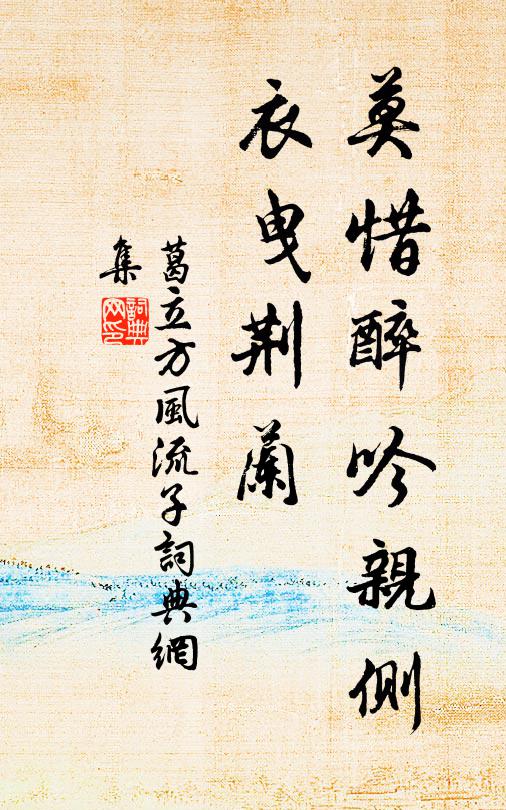 莫惜醉吟親側
衣曳荆蘭
葛立方風流子詞典網
集
詞典
网印